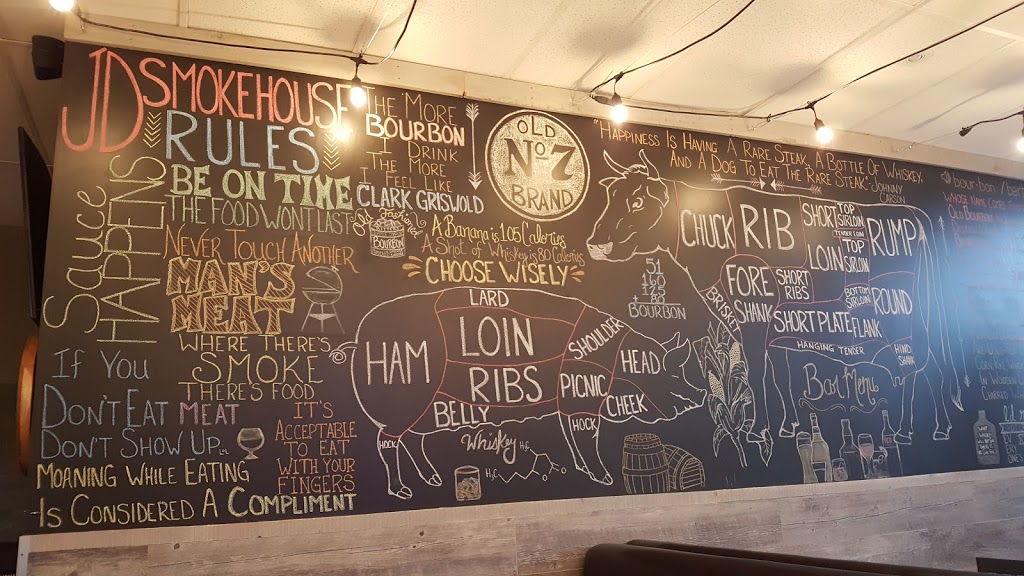 JD SMOKEHOUSE
RULES
BE ON TIME
THE FOOD WONT LAST
Sauce
HAPPENS
NEVER TOUCH ANOTHER
MAN'S
MEAT
WHERE THERE'S
SMOKE
THERE'S FOOD
IF YOU
DON'T EAT MEAT
DON'T SHOW UP
IT'S
ACCEPTABLE
TO EAT
WITH YOUR
FINGERS
MOANING WHILE EATING
IS CONSIDERED A COMPLIMENT
THE MORE
BOURBON
I DRINK
THE MORE
I FEEL LIKE
CLARK GRISWOLD
BOURBON
OLD
No 7
BRAND
A BANANA IS 105 CALORIES
A SHOT OF WHISKEY IS 80 CALORIES
CHOOSE WISELY
LARD
HAM
LOIN
RIBS
BELLY
SHOULDER
PICNIC
HEAD
CHEEK
HOCK
HOCK
Whiskey
H3C
O
"HAPPINESS IS HAVING A RARE STEAK, A BOTTLE OF WHISKEY,
AND A DOG TO EAT THE RARE STEAK"
-JOHNNY
CARSON
51
BOURBON
CHUCK
RIB
SHORT
LOIN
TOP
SIRLOIN
TENDER LOIN
TOP
SIRLOIN
BOTTOM
SIRLOIN
RUMP
ROUND
BRISKET
FORE
SHANK
SHORT
RIBS
SHORT PLATE
FLANK
HANGING TENDER
HIND
SHANK
Bar Menu
bour·bon